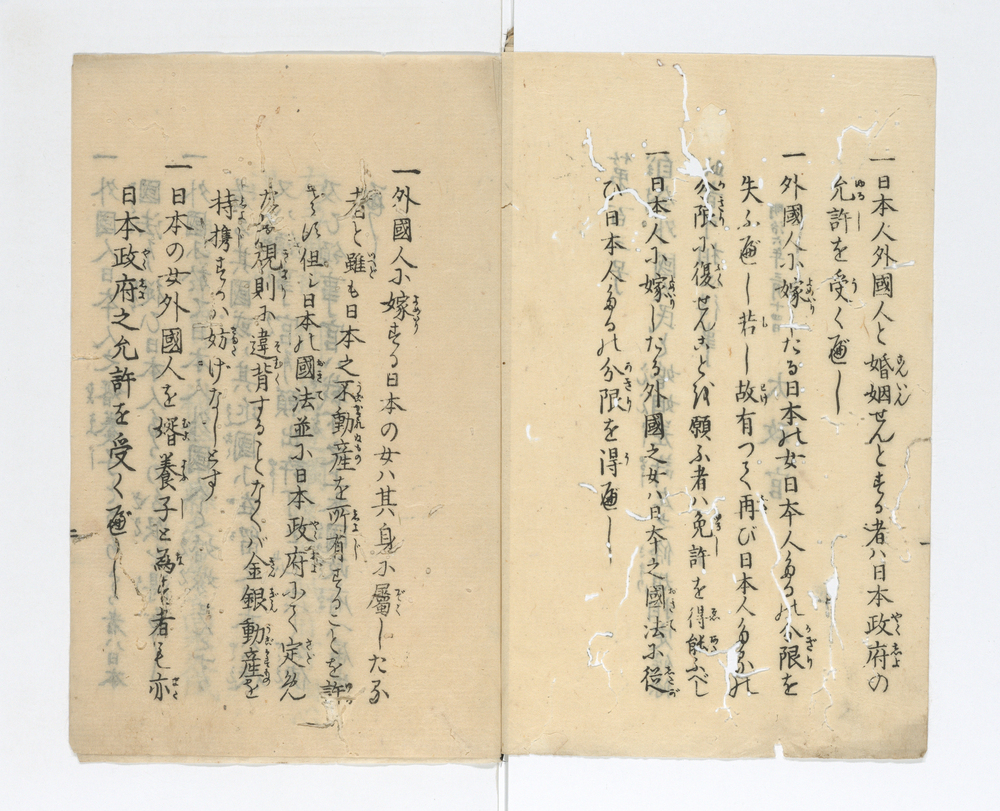 一日本人外國人と婚姻せんとする者ハ日本政府の
允許を受く可し
一外國人に嫁したる日本の女日本人たるの分限を
失ふ可し若し故有つて再び日本人たるの
分限に復せんことを願ふ者ハ免許を得能ふべし
一日本人に嫁したる外國之女ハ日本之國法に從
ひ日本人たるの分限を得可し
一外國人に嫁する日本の女ハ其身に屬したる
者と雖も日本之不動産を所有することを許
さず但シ日本の國法並に日本政府にて定めた
る規則に違背することなくバ金銀動産を
持携するハ妨げなしとす
一日本の女外國人を婿養子と為す者も亦
日本政府之允許を受く可し